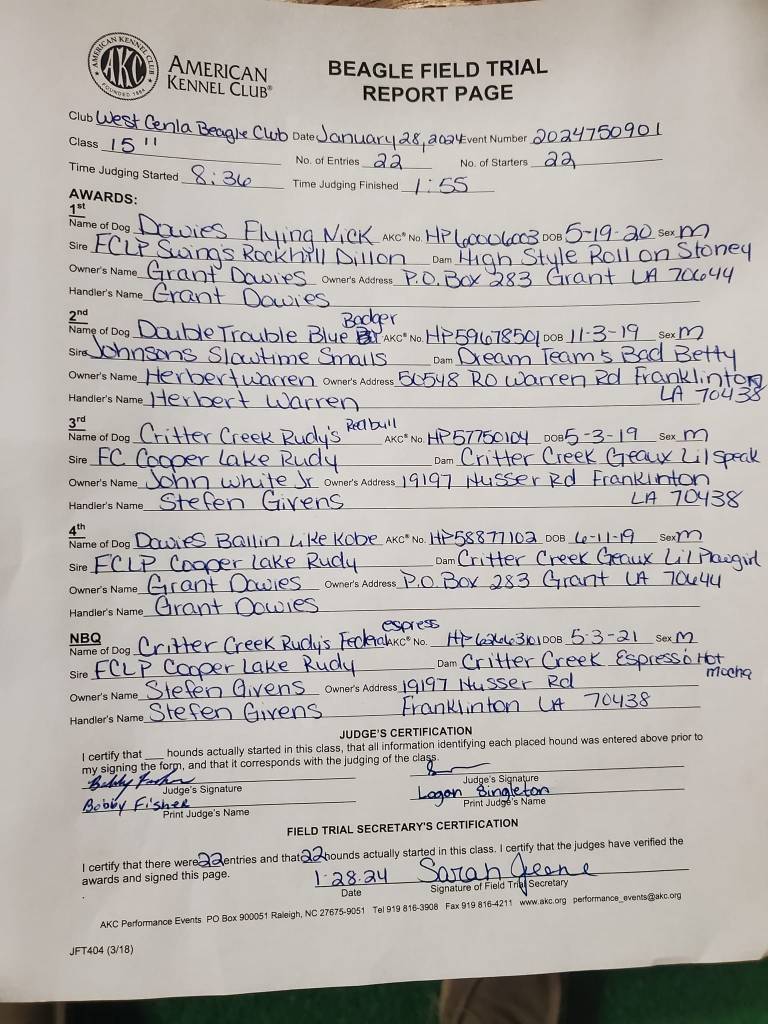 AMERICAN KENNEL CLUB
AKC
FOUNDED 1884
AMERICAN
KENNEL CLUB®
BEAGLE FIELD TRIAL
REPORT PAGE
Club West Cenla Beagle Club Date January 28, 2024 Event Number 2024750901
Class 15" No. of Entries 22 No. of Starters 22
Time Judging Started 8:36 Time Judging Finished 1:55
AWARDS:
1st
Name of Dog Dowies Flying Nick AKC® No. HP60006003 DOB 5-19-20 Sex M
Sire FCLP Swing's Rockhill Dillon Dam High Style Roll on Stoney
Owner's Name Grant Dowies Owner's Address P.O. Box 283 Grant LA 70644
Handler's Name Grant Dowies
2nd
Name of Dog Double Trouble Blue Badger AKC® No. HP59678501 DOB 11-3-19 Sex M
Sire Johnsons Slowtime Smalls Dam Dream Team's Bad Betty
Owner's Name Herbert Warren Owner's Address 50548 RO Warren Rd Franklinton
Handler's Name Herbert Warren LA 70438
3rd
Name of Dog Critter Creek Rudy's Redbull AKC® No. HP57750104 DOB 5-3-19 Sex M
Sire FC Cooper Lake Rudy Dam Critter Creek Geaux Lil Speak
Owner's Name John White Jr Owner's Address 19197 Husser Rd Franklinton
Handler's Name Stefen Givens LA 70438
4th
Name of Dog Dowies Ballin Like Kobe AKC® No. HP58877102 DOB 6-11-19 Sex M
Sire FCLP Cooper Lake Rudy Dam Critter Creek Geaux Lil Playgirl
Owner's Name Grant Dowies Owner's Address P.O. Box 283 Grant LA 70644
Handler's Name Grant Dowies
NBQ
Name of Dog Critter Creek Rudy's Federal espress AKC® No. HP62663101 DOB 5-3-21 Sex M
Sire FCLP Cooper Lake Rudy Dam Critter Creek Espresso Hot Mocha
Owner's Name Stefen Givens Owner's Address 19197 Husser Rd
Handler's Name Stefen Givens Franklinton LA 70438
JUDGE'S CERTIFICATION
I certify that ___ hounds actually started in this class, that all information identifying each placed hound was entered above prior to
my signing the form, and that it corresponds with the judging of the class.
Bobby Fisher
Judge's Signature Judge's Signature
Bobby Fisher Logan Singleton
Print Judge's Name Print Judge's Name
FIELD TRIAL SECRETARY'S CERTIFICATION
I certify that there were 22 entries and that 22 hounds actually started in this class. I certify that the judges have verified the
awards and signed this page.
1-28-24 Sarah Jeane
Date Signature of Field Trial Secretary
AKC Performance Events PO Box 900051 Raleigh, NC 27675-9051 Tel 919 816-3908 Fax 919 816-4211 www.akc.org performance_events@akc.org
JFT404 (3/18)